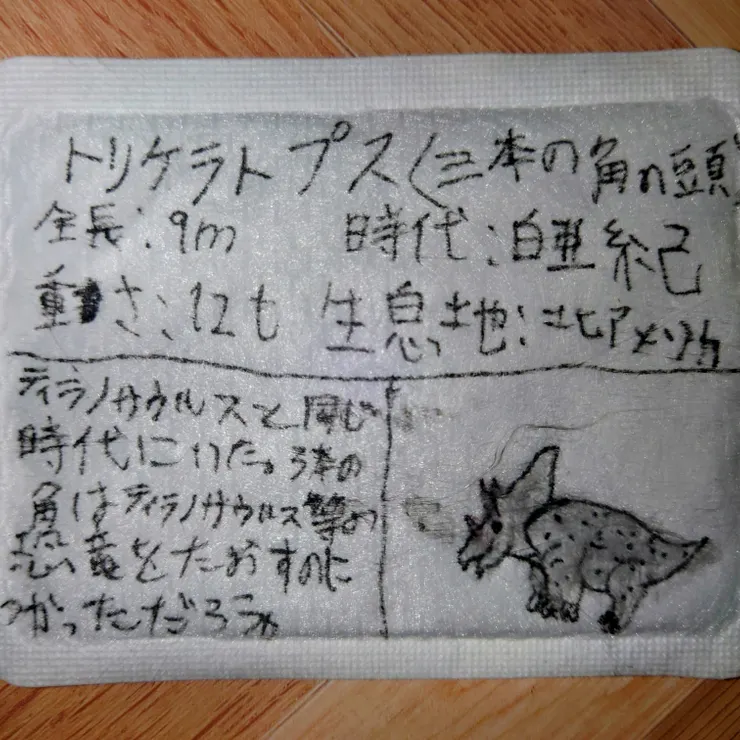 トリケラトプス(三本の角の頭)
全長:9m 時代:白亜紀
重さ:12t 生息地:北アメリカ
ティラノサウルスと同じ
時代にいた。3本の
角はティラノサウルス等の
恐竜をたおすのに
つかっただろう。